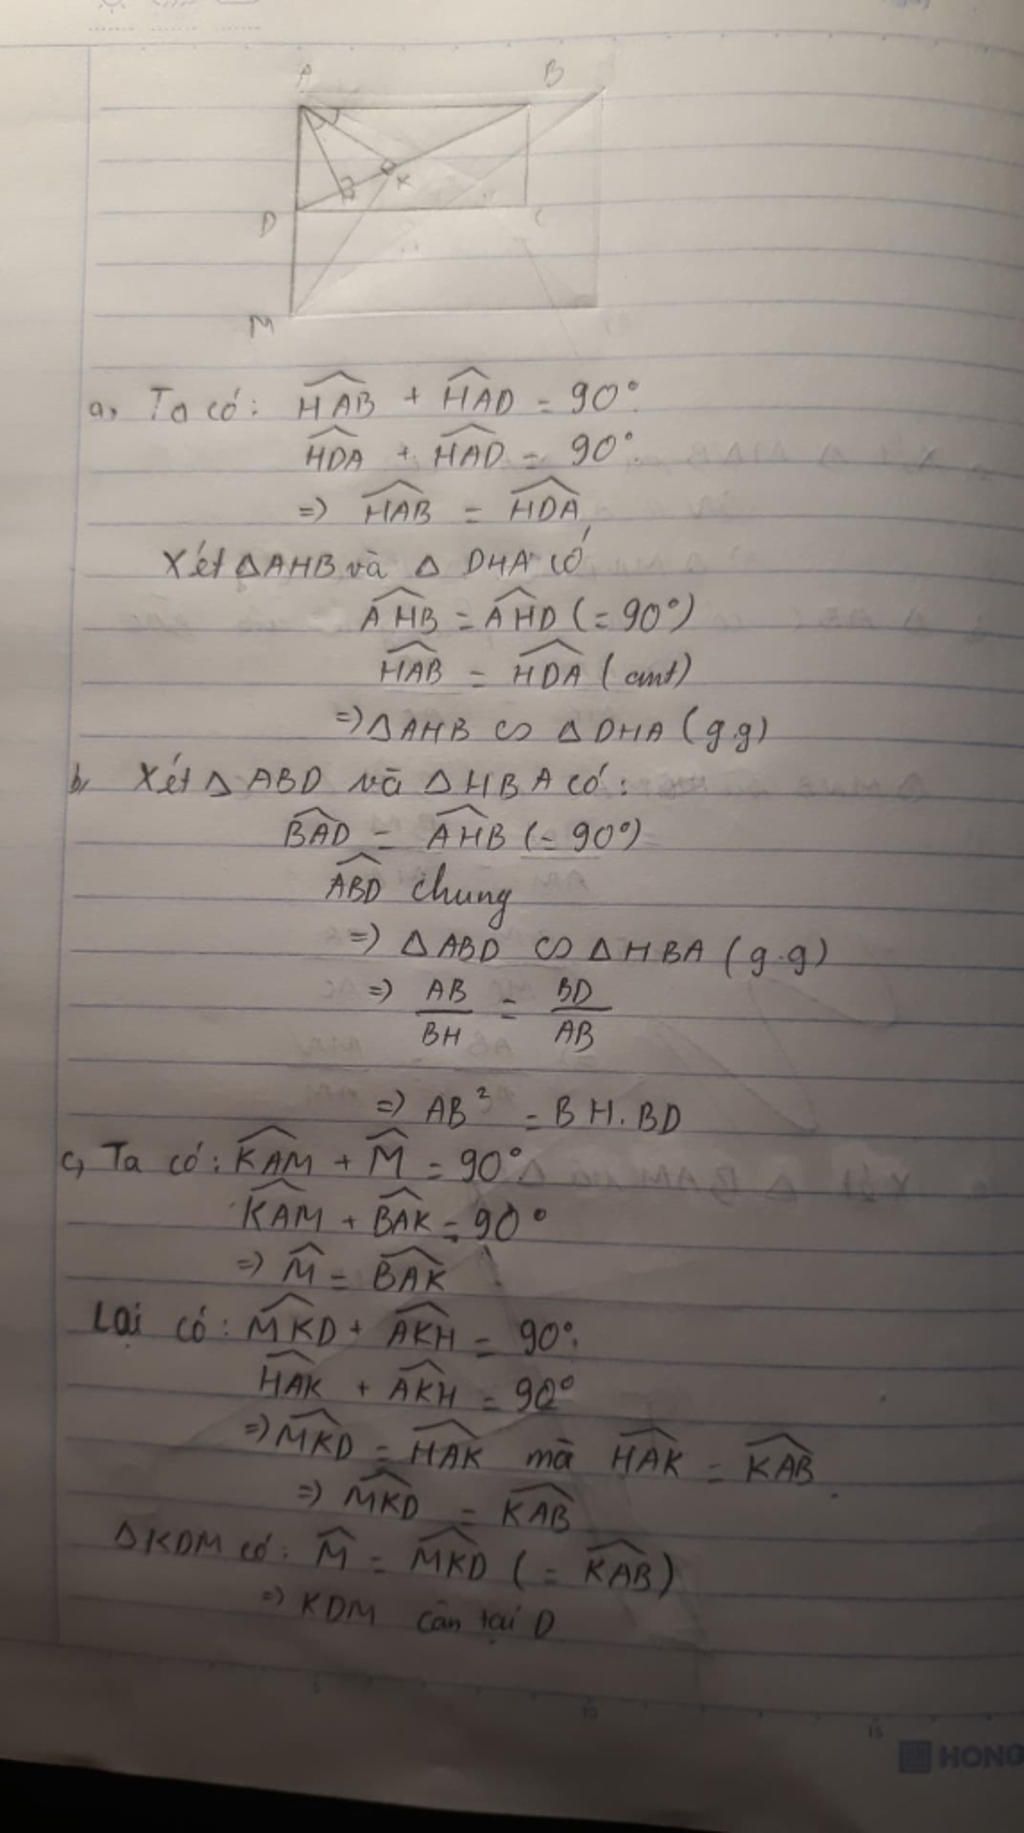 A B
K
D C
M
a, Ta có: $\widehat{HAB} + \widehat{HAD} = 90°$.
$\widehat{HDA} + \widehat{HAD} = 90°$.
=> $\widehat{HAB} = \widehat{HDA}$
Xét △AHB và △ DHA có
$\widehat{AHB} = \widehat{AHD}$ (= 90°)
$\widehat{HAB} = \widehat{HDA}$ (cmt)
=> △AHB ∽ △DHA (g.g)
b, Xét △ ABD và △HBA có:
$\widehat{BAD} = \widehat{AHB}$ (= 90°)
$\widehat{ABD}$ chung
=> △ABD ∽ △HBA (g.g)
=> $\frac{AB}{BH} = \frac{BD}{AB}$
=> AB² = BH.BD
c, Ta có: $\widehat{KAM} + \widehat{M} = 90°$.
$\widehat{KAM} + \widehat{BAK} = 90°$
=> $\widehat{M} = \widehat{BAK}$
Lại có: $\widehat{MKD} + \widehat{AKH} = 90°$.
$\widehat{HAK} + \widehat{AKH} = 90°$
=> $\widehat{MKD} = \widehat{HAK}$ mà $\widehat{HAK} = \widehat{KAB}$.
=> $\widehat{MKD} = \widehat{KAB}$
△KDM có: $\widehat{M} = \widehat{MKD}$ (= $\widehat{KAB}$)
=> KDM cân tại D
10 15
HONG